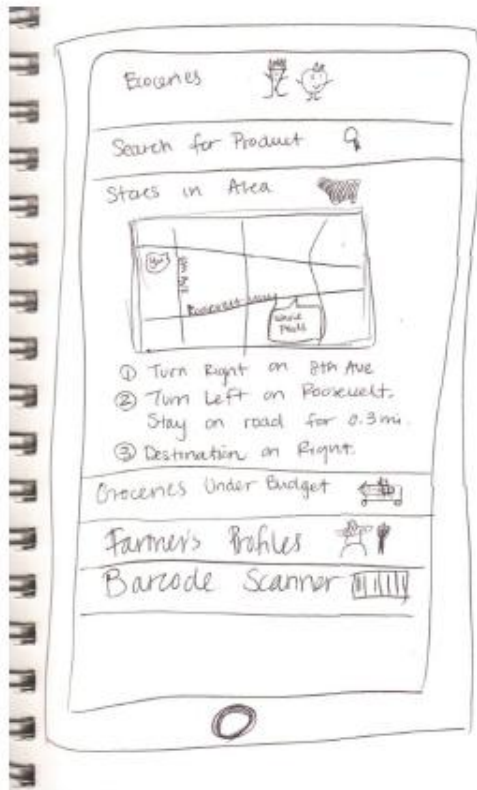 Ecoceries
Search for Product
Stores in Area
You
8th Ave
Roosevelt Way
Whole
Foods
① Turn Right on 8th Ave
② Turn Left on Roosevelt.
Stay on road for 0.3 mi.
③ Destination on Right.
Groceries Under Budget
Farmer's Profiles
Barcode Scanner